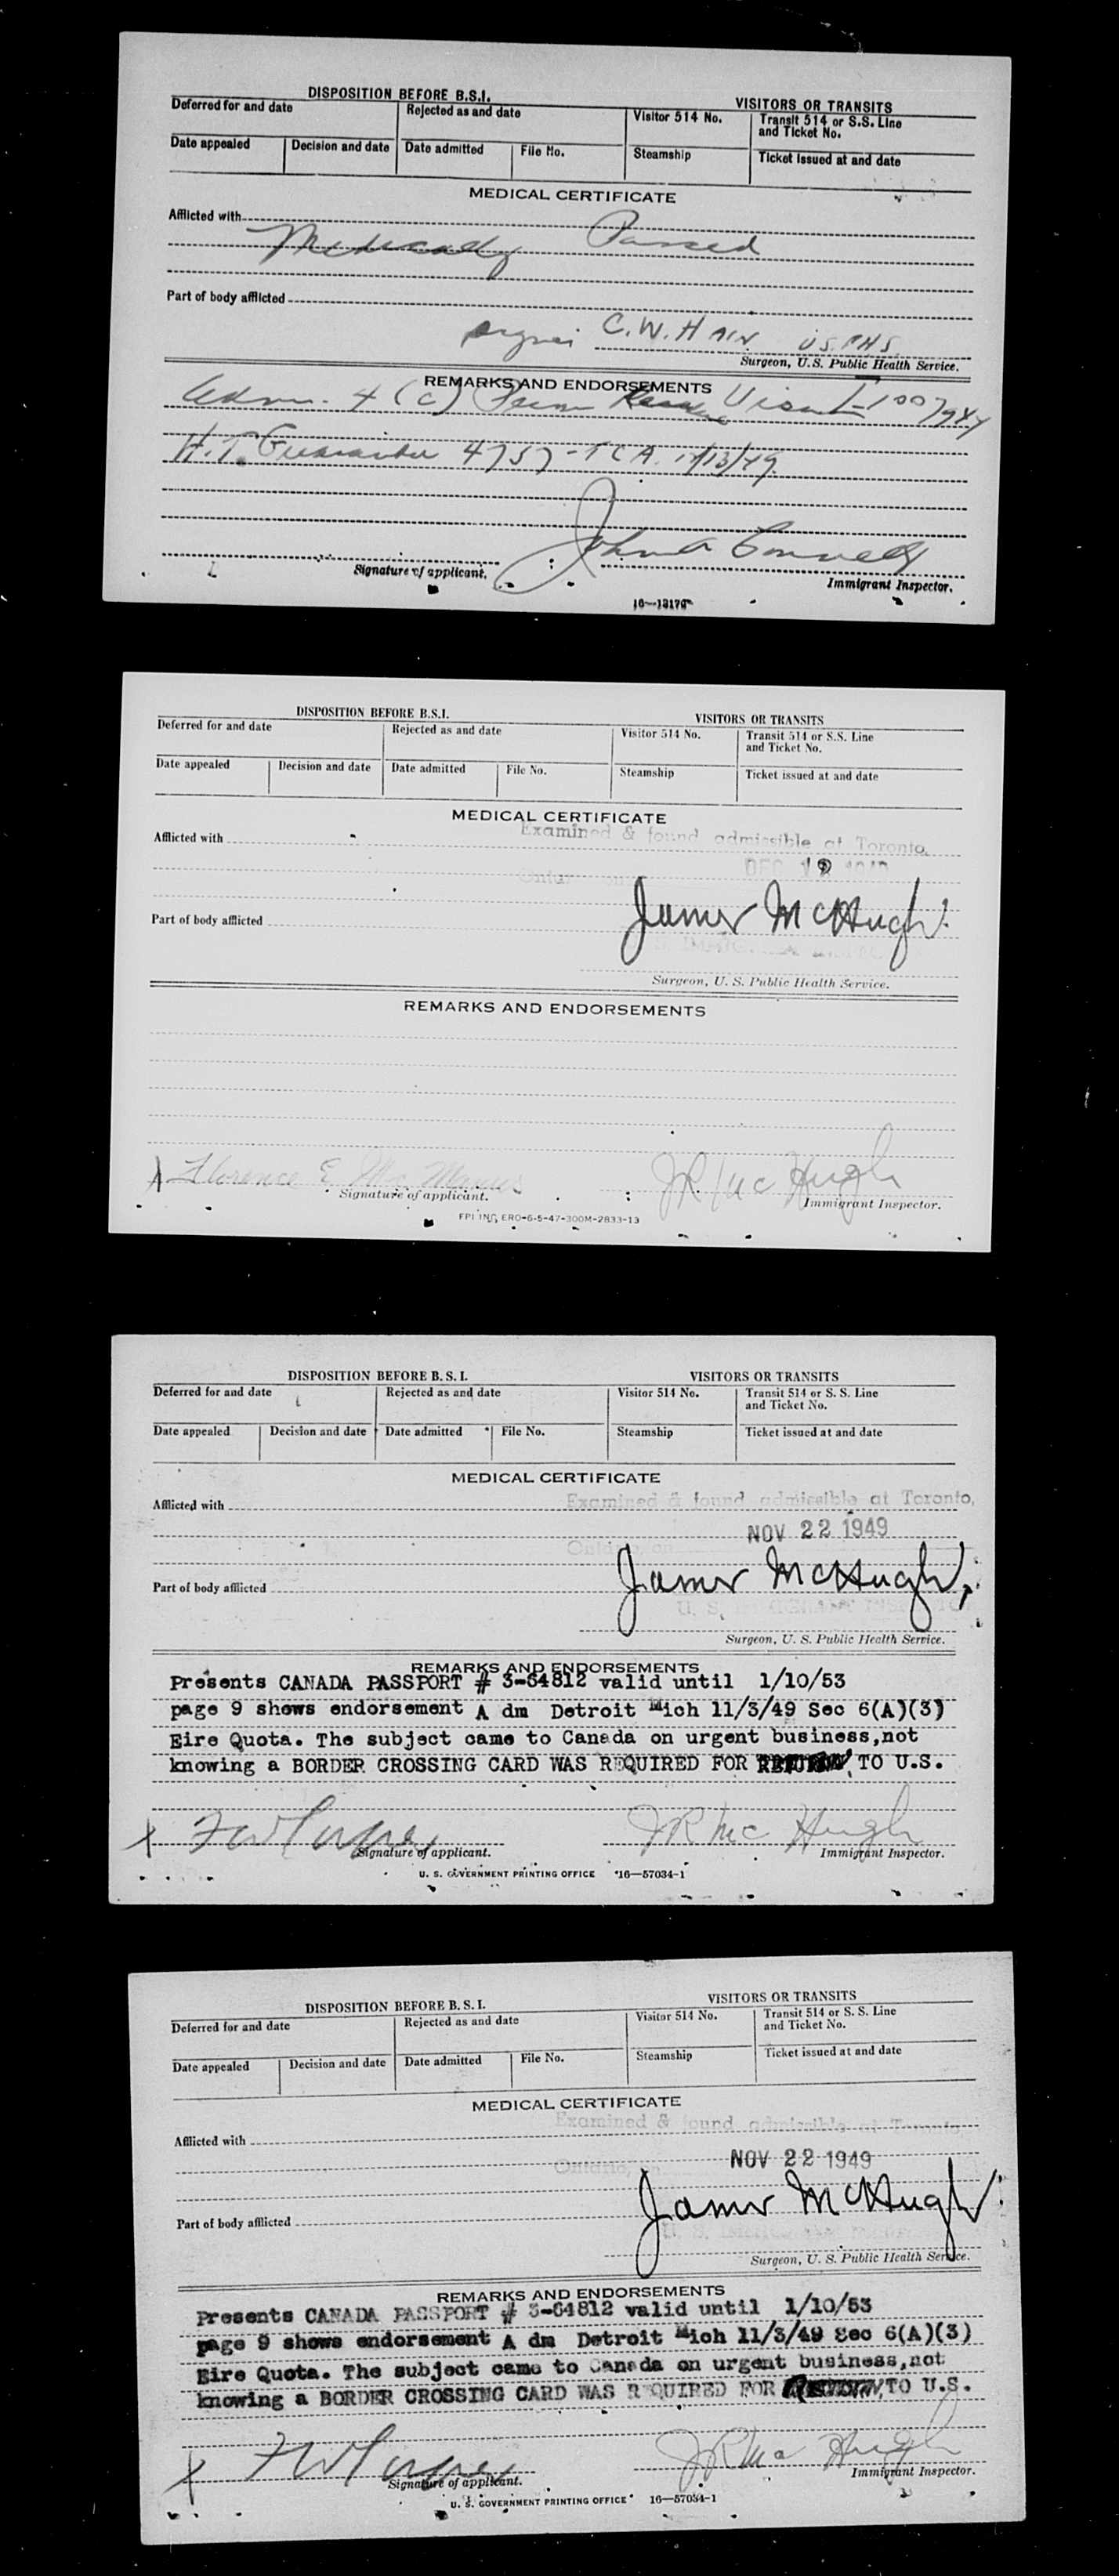 DISPOSITION BEFORE B.S.I.
VISITORS OR TRANSITS
Deferred for and date
Rejected as and date
Visitor 514 No.
Transit 514 or S.S. Line
and Ticket No.
Date appealed
Decision and date
Date admitted
File No.
Steamship
Ticket issued at and date
MEDICAL CERTIFICATE
Afflicted with
Medically Passed
Part of body afflicted
C.W. Hain USPHS
Surgeon, U.S. Public Health Service.
REMARKS AND ENDORSEMENTS
Adm. 4 (c)
H.T. Guarantee 4757-TCA
John A Connelly
Signature of applicant.
Immigrant Inspector.
16—13170
DISPOSITION BEFORE B.S.I.
VISITORS OR TRANSITS
Deferred for and date
Rejected as and date
Visitor 514 No.
Transit 514 or S.S. Line
and Ticket No.
Date appealed
Decision and date
Date admitted
File No.
Steamship
Ticket issued at and date
MEDICAL CERTIFICATE
Examined & found admissible at Toronto,
Afflicted with
James McHugh
Part of body afflicted
Surgeon, U. S. Public Health Service.
REMARKS AND ENDORSEMENTS
X Florence E
JR McHugh
Signature of applicant.
Immigrant Inspector.
FPI INC, ERO-6-5-47-300M-2833-13
DISPOSITION BEFORE B. S. I.
VISITORS OR TRANSITS
Deferred for and date
Rejected as and date
Visitor 514 No.
Transit 514 or S. S. Line
and Ticket No.
Date appealed
Decision and date
Date admitted
File No.
Steamship
Ticket issued at and date
MEDICAL CERTIFICATE
Examined & found admissible at Toronto,
Afflicted with
NOV 22 1949
Ontario, on
James McHugh
Part of body afflicted
Surgeon, U. S. Public Health Service.
REMARKS AND ENDORSEMENTS
Presents CANADA PASSPORT # 3-64812 valid until 1/10/53
page 9 shows endorsement A dm Detroit Mich 11/3/49 Sec 6(A)(3)
Eire Quota. The subject came to Canada on urgent business,not
knowing a BORDER CROSSING CARD WAS REQUIRED FOR TO U.S.
X
JR McHugh
Signature of applicant.
Immigrant Inspector.
U. S. GOVERNMENT PRINTING OFFICE 16—57034-1
DISPOSITION BEFORE B. S. I.
VISITORS OR TRANSITS
Deferred for and date
Rejected as and date
Visitor 514 No.
Transit 514 or S. S. Line
and Ticket No.
Date appealed
Decision and date
Date admitted
File No.
Steamship
Ticket issued at and date
MEDICAL CERTIFICATE
Examined & found admissible at Toronto,
Afflicted with
NOV 22 1949
Ontario, on
James McHugh
Part of body afflicted
Surgeon, U. S. Public Health Service.
REMARKS AND ENDORSEMENTS
Presents CANADA PASSPORT # 3-64812 valid until 1/10/53
page 9 shows endorsement A dm Detroit Mich 11/3/49 Sec 6(A)(3)
Eire Quota. The subject came to Canada on urgent business,not
knowing a BORDER CROSSING CARD WAS REQUIRED FOR TO U.S.
X
JR McHugh
Signature of applicant.
Immigrant Inspector.
U. S. GOVERNMENT PRINTING OFFICE 16—57034-1